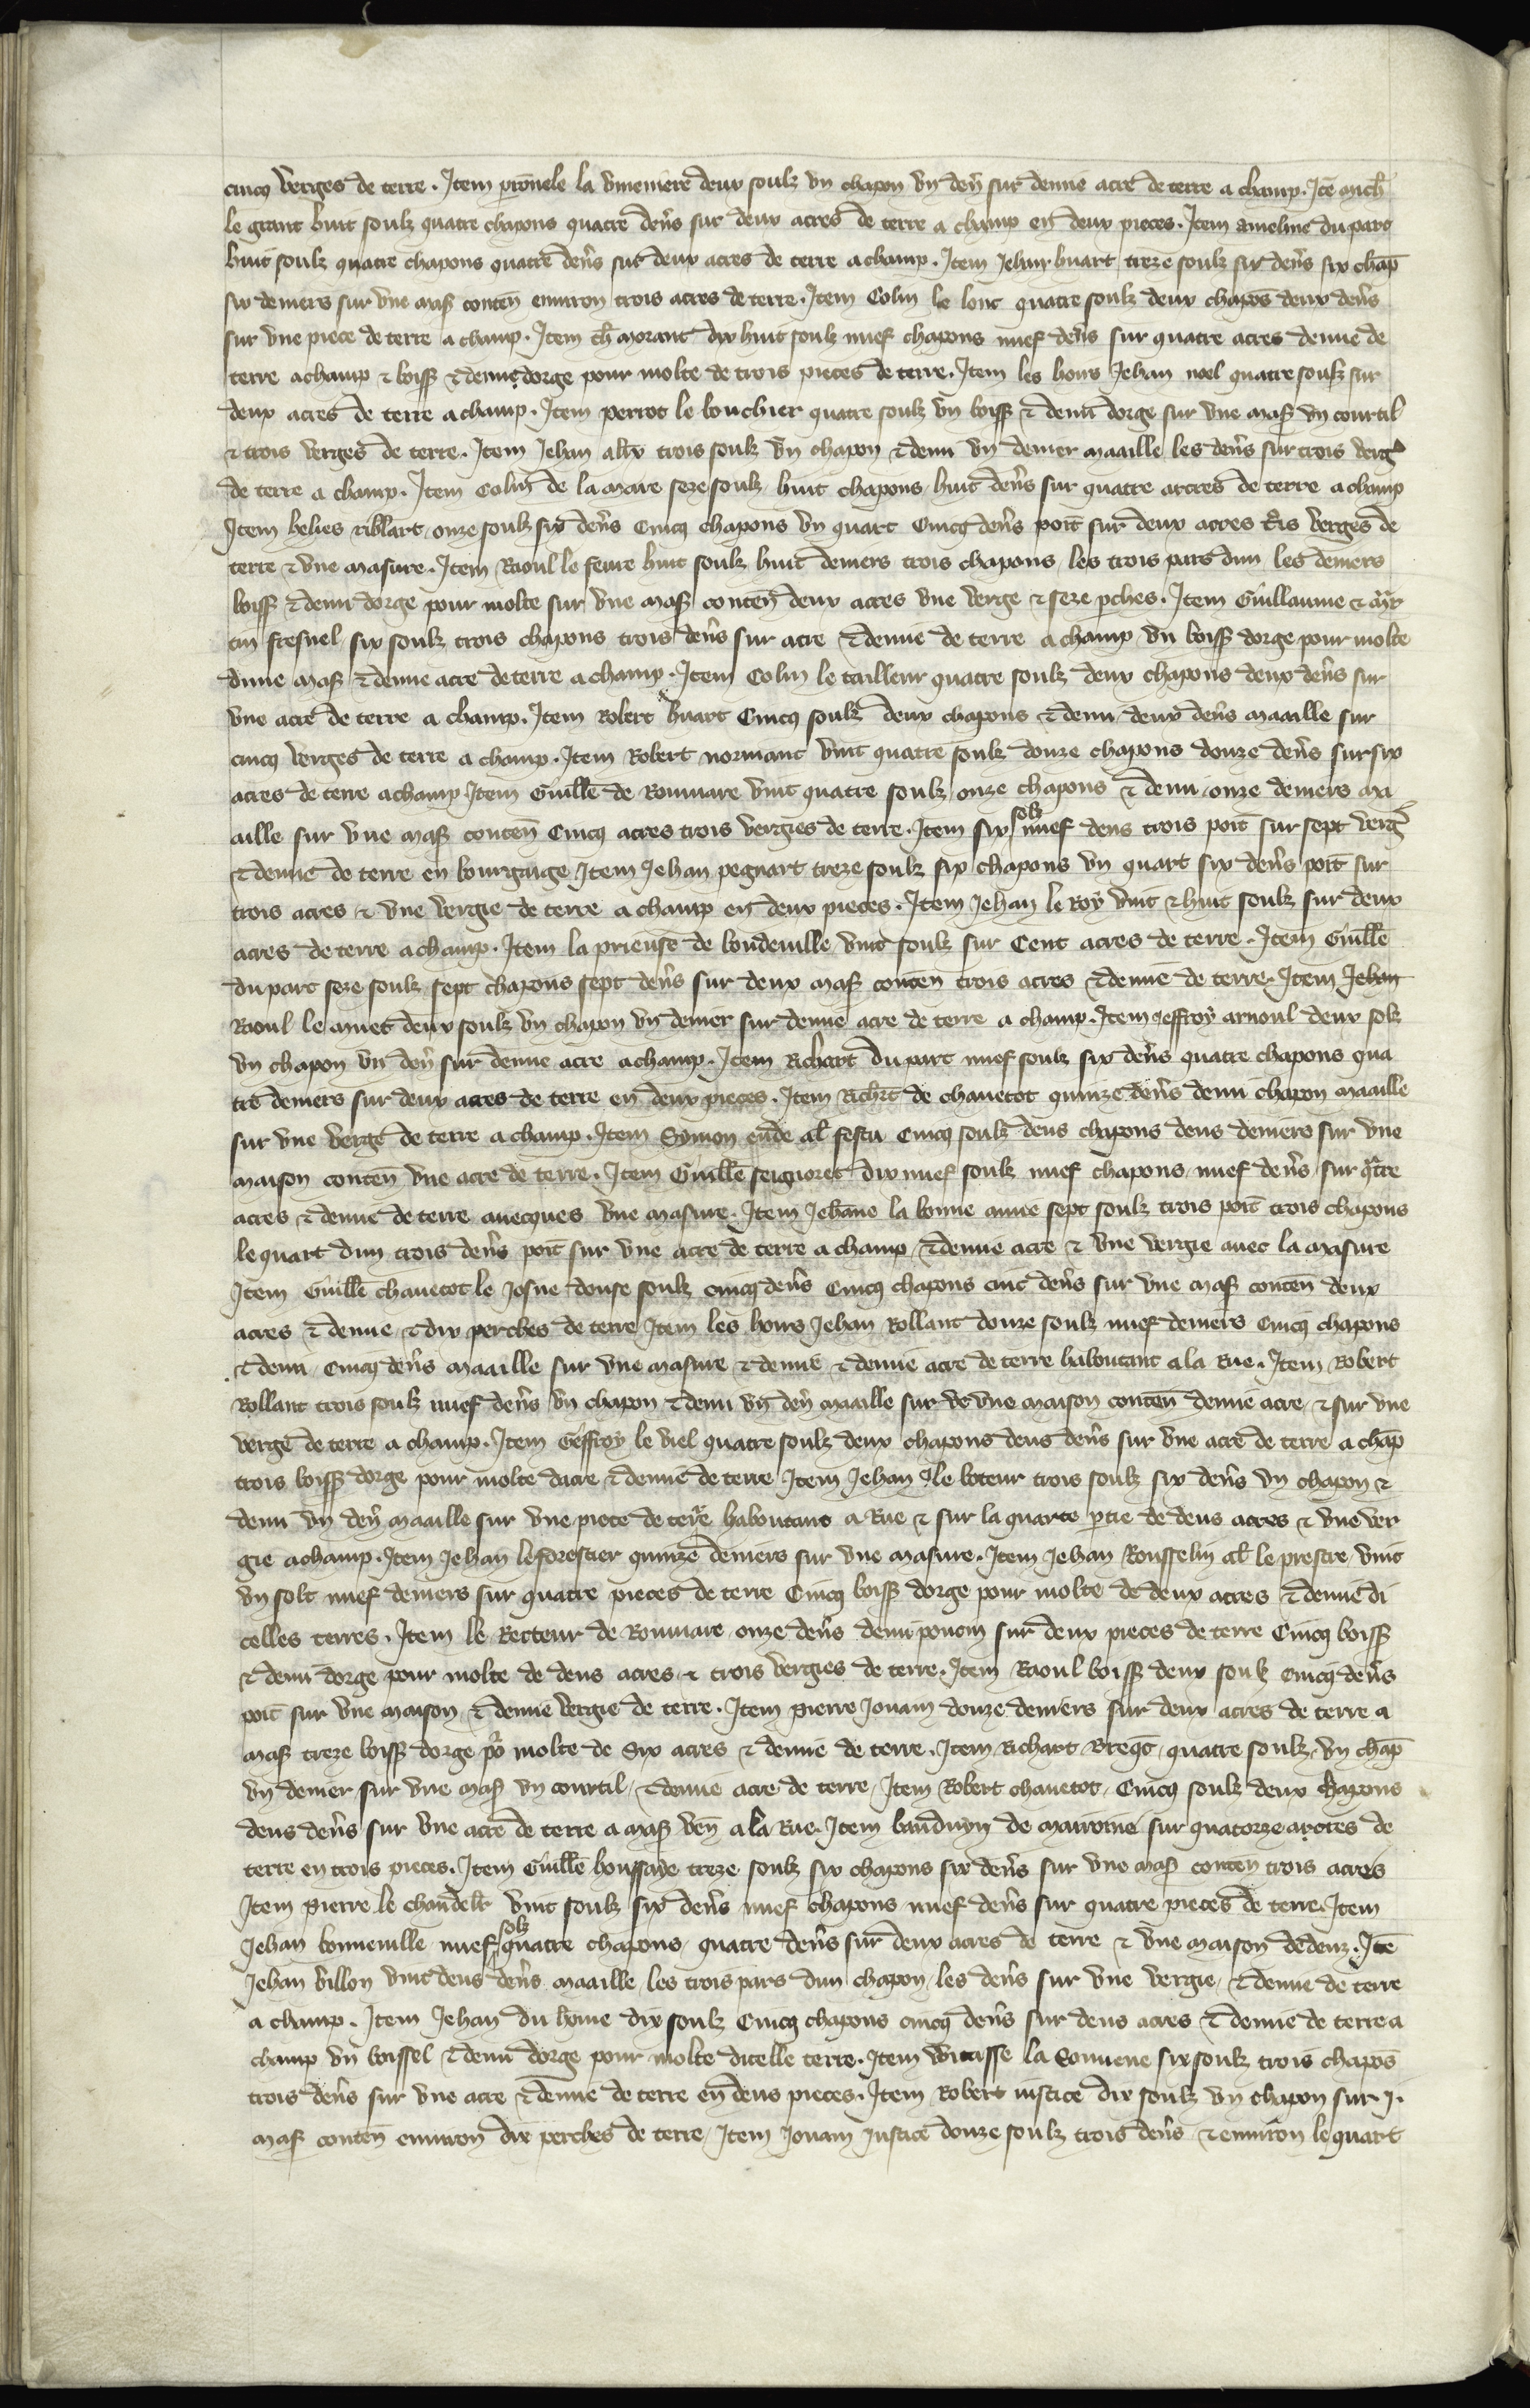 cincq verges de terre. Item pronele la vinemere deux soulz vn chapon vn den sur demie acre de terre a champ. Ite mich
le grant huit soulz quatre chapons quatre dens sur deux acres de terre a champ en deux pieces. Item ameline du parc
huit soulz quatre chapons quatre dens sur deux acres de terre a champ. Item Jehan huart treze soulz six dens six chap
six deniers sur vne mas conten enuiron trois acres de terre. Item Colin le lonc quatre soulz deux chapos deux dens
sur vne piece de terre a champ. Item ch morant dix huit soulz nuef chapons nuef dens sur quatre acres demie de
terre a champ & boiss & demie dorge pour molte de trois pieces de terre. Item les hoirs Jehan noel quatre soulz sur
deux acres de terre a champ. Item perrot le bouchier quatre soulz vn boiss & demi dorge sur vne mas vn courtil
& trois verges de terre. Item Jehan alix trois soulz vn chapon & demi vn denier maaille les dens sur trois verg
de terre a champ. Item Colin de la mare seze soulz huit chapons huit dens sur quatre acres de terre a champ
Item helies riblart onze soulz six dens Cincq chapons vn quart Cincq dens poit sur deux acres tris verges de
terre & vne masure. Item Raoul le feure huit soulz huit deniers trois chapons les trois pars dun les deniers
boiss & demi dorge pour molte sur vne mas conten deux acres vne verge & seze pches. Item Guillaume & mar
tin fresnel six soulz trois chapons trois dens sur acre & demie de terre a champ vn boiss dorge pour molte
dune mas & demie acre de terre a champ. Item Colin le tailleur quatre soulz deux chapons deux dens sur
vne acre de terre a champ. Item Robert huart Cincq soulz deux chapons & demi deux dens maaille sur
cincq verges de terre a champ. Item Robert normant vint quatre soulz douze chapons douze dens sur six
acres de terre a champ Item Guille de Roumare vint quatre soulz onze chapons & demi onze deniers ma
aille sur vne mas conten Cincq acres trois vergies de terre. Item six solz nuef dens trois poit sur sept verg
& demie de terre en bourgaige Item Jehan pegnart treze soulz six chapons vn quart six dens poit sur
trois acres & vne vergie de terre a champ en deux pieces. Item Jehan le Roy vint & huit soulz sur deux
acres de terre a champ. Item la prieuse de bondeuille vint soulz sur Cent acres de terre. Item Guille
du parc seze soulz sept chapons sept dens sur deux mas conten trois acres & demie de terre. Item Jehan
Raoul le amet deux soulz vn chapon vn denier sur demie acre de terre a champ. Item Jeffroy arnoul deux solz
vn chapon vn den sur demie acre a champ. Item Richart du parc nuef soulz six dens quatre chapons qua
tre deniers sur deux acres de terre en deux pieces. Item Richrt de chauetot quinze dens demi chapon maaille
sur vne verge de terre a champ. Item Symon eude al festu Cincq soulz deus chapons deus deniers sur vne
maison conten vne acre de terre. Item Guille seignoret dix nuef soulz nuef chapons nuef dens sur qtre
acres & demie de terre auecques vne masure. Item Jehane la bonne amie sept soulz trois poit trois chapons
le quart dun trois dens poit sur vne acre de terre a champ & demie acre & vne vergie auec la masure
Item Guille chauetot le Josne douse soulz cincq dens Cincq chapons cinc dens sur vne mas conten deux
acres & demie & dix perches de terre Item les hoirs Jehan Rollant douze soulz nuef deniers Cincq chapons
& demi Cincq dens maaille sur vne masure & demie & demie acre de terre haboutant a la Rue. Item Robert
Rollant trois soulz nuef dens vn chapon & demi vn den maaille sur de vne maison conten demie acre & sur vne
verge de terre a champ. Item Geffroy le viel quatre soulz deux chapons deus dens sur vne acre de terre a chap
trois boiss dorge pour molte dacre & demie de terre Item Jehan le boteur trois soulz six dens vn chapon &
demi vn den maaille sur vne piece de terre haboutant a Rue & sur la quarte ptie de deus acres & vne ver
gie a champ. Item Jehan leforestier quinze deniers sur vne masure. Item Jehan Rousselin al le prestre vint
vn solt nuef deniers sur quatre pieces de terre Cincq boiss dorge pour molte de deux acres & demie di
celles terres. Item le Recteur de Roumare onze dens demi pouom sur deux pieces de terre Cincq boiss
& demi dorge pour molte de deus acres & trois vergies de terre. Item Raoul boiss deux soulz cincq dens
poit sur vne maison & demie vergie de terre. Item pierre Jouam douze deniers sur deux acres de terre a
mas treze boiss dorge por molte de Six acres & demie de terre. Item Richart Breqt quatre soulz vn chap
vn denier sur vne mas vn courtil & demie acre de terre Item Robert chauetot Cincq soulz deux chapons
deus dens sur vne acre de terre a mas ven a la Rue. Item bauduyn de marromé sur quatorze acres de
terre en trois pieces. Item Guille houssaye treze soulz six chapons six dens sur vne mas conten trois acres
Item pierre le chandelr vint soulz six dens nuef chapons nuef dens sur quatre pieces de terre Item
Jehan bonneuille nuef solz quatre chapons quatre dens sur deux acres de terre & vne maison dedenz. Ite
Jehan billon vint deus dens maaille les trois pars dun chapon les dens sur vne vergie & demie de terre
a champ. Item Jehan du home dix soulz Cincq chapons cincq dens sur deus acres & demie de terre a
champ vn boissel & demi dorge pour molte dicelle terre. Item Witasse la Conuene six soulz trois chapos
trois dens sur vne acre & demie de terre en deus pieces. Item Robert iustice dix soulz vn chapon sur .j.
mas conten enuiron dix perches de terre Item Jouam Justice douze soulz trois dens & enuiron le quart